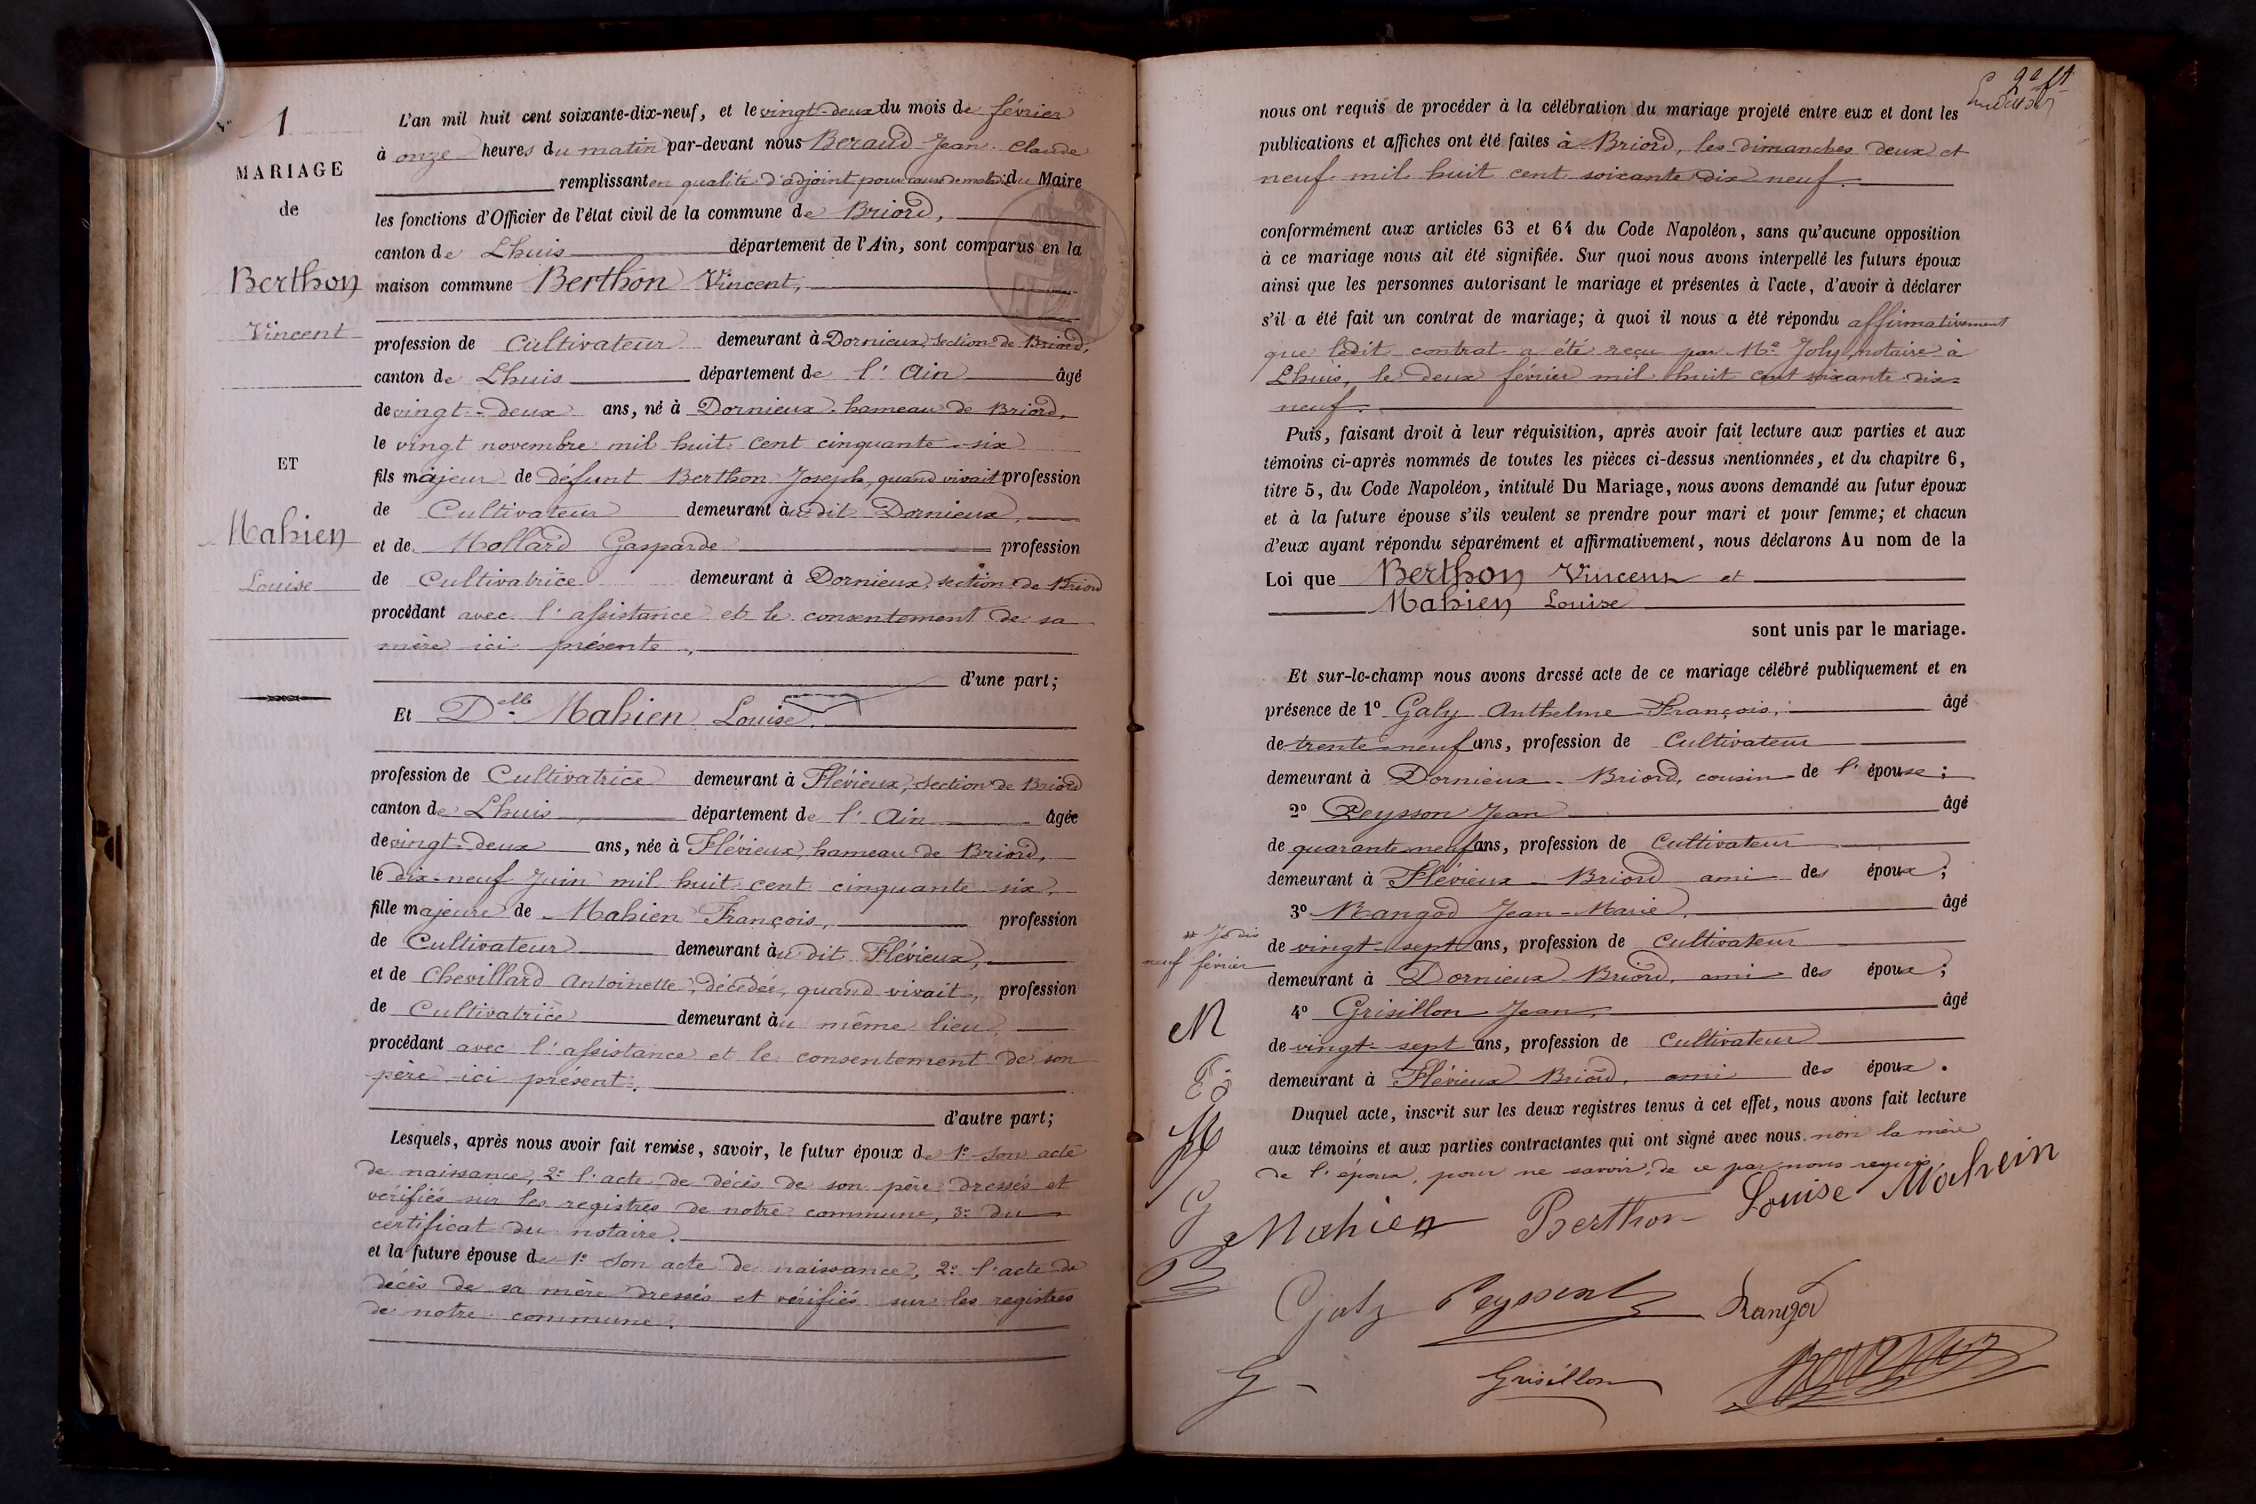 N° 1
MARIAGE
de
Berthon
Vincent
ET
Mahien
Louise
L'an mil huit cent soixante-dix-neuf, et le vingt-deux du mois de février
à onze heures du matin par-devant nous Beraud Jean Claude
remplissant en qualité d'adjoint pour cause de maladie du Maire
les fonctions d'Officier de l'état civil de la commune de Briord,
canton de Lhuis département de l'Ain, sont comparus en la
maison commune Berthon Vincent,
profession de Cultivateur demeurant à Dornieux, section de Briord,
canton de Lhuis département de l'Ain âgé
de vingt-deux ans, né à Dornieux, hameau de Briord,
le vingt novembre mil huit cent cinquante-six
fils majeur de défunt Berthon Joseph, quand vivait profession
de Cultivateur demeurant audit Dornieux,
et de Mollard Gasparde profession
de Cultivatrice demeurant à Dornieux, section de Briord
procédant avec l'assistance et le consentement de sa
mère ici présente,
d'une part;
Et Delle Mahien Louise,
profession de Cultivatrice demeurant à Flévieux, section de Briord
canton de Lhuis département de l'Ain âgée
de vingt-deux ans, née à Flévieux, hameau de Briord,
le dix-neuf Juin mil huit cent cinquante-six,
fille majeure de Mahien François, profession
de Cultivateur demeurant audit Flévieux,
et de Chevillard Antoinette, décédée, quand vivait, profession
de Cultivatrice demeurant au même lieu,
procédant avec l'assistance et le consentement de son
père ici présent.
d'autre part;
Lesquels, après nous avoir fait remise, savoir, le futur époux de 1° son acte
de naissance, 2° l'acte de décès de son père dressés et
vérifiés sur les registres de notre commune, 3° du
certificat du notaire.
et la future épouse de 1° son acte de naissance, 2° l'acte de
décès de sa mère dressés et vérifiés sur les registres
de notre commune.
nous ont requis de procéder à la célébration du mariage projeté entre eux et dont les
publications et affiches ont été faites à Briord, les dimanches deux et
neuf mil huit cent soixante dix neuf.
conformément aux articles 63 et 64 du Code Napoléon, sans qu'aucune opposition
à ce mariage nous ait été signifiée. Sur quoi nous avons interpellé les futurs époux
ainsi que les personnes autorisant le mariage et présentes à l'acte, d'avoir à déclarer
s'il a été fait un contrat de mariage; à quoi il nous a été répondu affirmativement
que ledit contrat a été reçu par Me Joly, notaire à
Lhuis, le deux février mil huit cent soixante-dix-
neuf.
Puis, faisant droit à leur réquisition, après avoir fait lecture aux parties et aux
témoins ci-après nommés de toutes les pièces ci-dessus mentionnées, et du chapitre 6,
titre 5, du Code Napoléon, intitulé Du Mariage, nous avons demandé au futur époux
et à la future épouse s'ils veulent se prendre pour mari et pour femme; et chacun
d'eux ayant répondu séparément et affirmativement, nous déclarons Au nom de la
Loi que Berthon Vincent et
Mahien Louise
sont unis par le mariage.
Et sur-le-champ nous avons dressé acte de ce mariage célébré publiquement et en
présence de 1° Galy Anthelme François, âgé
de trente-neuf ans, profession de Cultivateur
demeurant à Dornieux-Briord, cousin de l'épouse;
2° Peysson Jean âgé
de quarante neuf ans, profession de Cultivateur
demeurant à Flévieux-Briord ami des époux;
3° Rangod Jean-Marie, âgé
de vingt-sept ans, profession de Cultivateur
demeurant à Dornieux-Briord, ami des époux;
4° Grisillon Jean, âgé
de vingt-sept ans, profession de Cultivateur
demeurant à Flévieux Briord, ami des époux.
Duquel acte, inscrit sur les deux registres tenus à cet effet, nous avons fait lecture
aux témoins et aux parties contractantes qui ont signé avec nous non la mère
de l'époux, pour ne savoir, de ce par nous requis
neuf février
M
Mahien Berthon Louise Mahein
Galy Peysson Rangod
G Grisillon